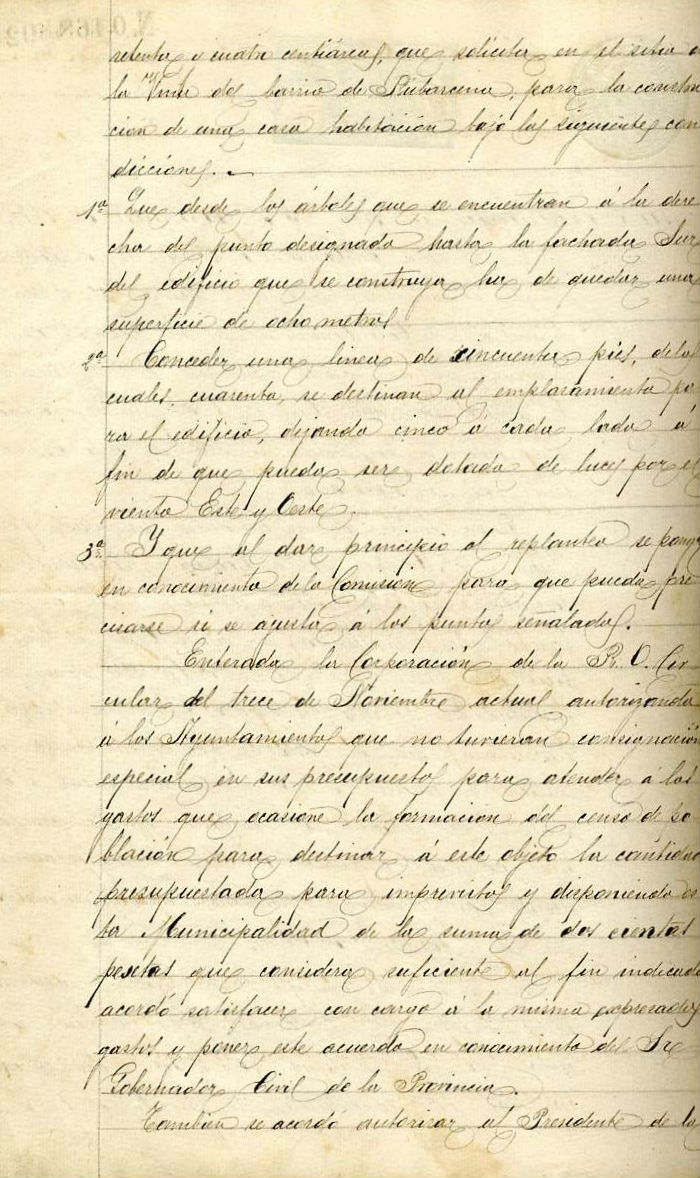 setenta y cuatro centiáreas, que solicita en el sitio
la del barrio de para la constru
cion de una casa habitación bajo las siguientes con
dicciones.
1ª Que desde los árboles que se encuentran á la dere
cha del punto designado hasta la fachada Sur
del edificio que se construya ha de quedar una
superficie de ocho metros
2ª Conceder una linea de cincuenta pies, de los
cuales, cuarenta, se destinan al emplazamiento pa
ra el edificio, dejando cinco á cada lado á
fin de que pueda ser dotada de luces por el
viento Este y Oeste.
3ª Y que al dar principio al replanteo se ponga
en conocimiento de la Comisión para que pueda pre
cisarse si se ajusta á los puntos señalados.
Enterada la Corporación de la R. O. Cir
cular del trece de Noviembre actual autorizando
á los Ayuntamientos que no tuvieran consignación
especial en sus presupuestos para atender á los
gastos que ocasione la formacion del censo de po-
blación para destinar á este objeto la cantidad
presupuestada para imprevistos y disponiendo es
ta Municipalidad de la suma de dos cientas
pesetas que considera suficiente al fin indicado
acordó satisfacer con cargo á la misma expresados
gastos y poner este acuerdo en conocimiento del Sr
Gobernador Civil de la Provincia.
Tambien se acordó autorizar al Presidente de la